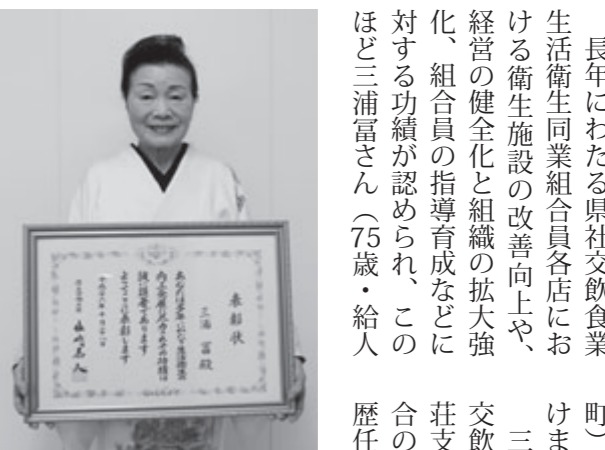 長年にわたる県社交飲食業
生活衛生同業組合員各店にお
ける衛生施設の改善向上や、
経営の健全化と組織の拡大強
化、組合員の指導育成などに
対する功績が認められ、この
ほど三浦冨さん（75歳・給人
町）
けま
三
交飲
荘支
合の
歴任
表彰状
三浦冨殿
あなたは多年にわたり生活衛生の
よってここに表彰します